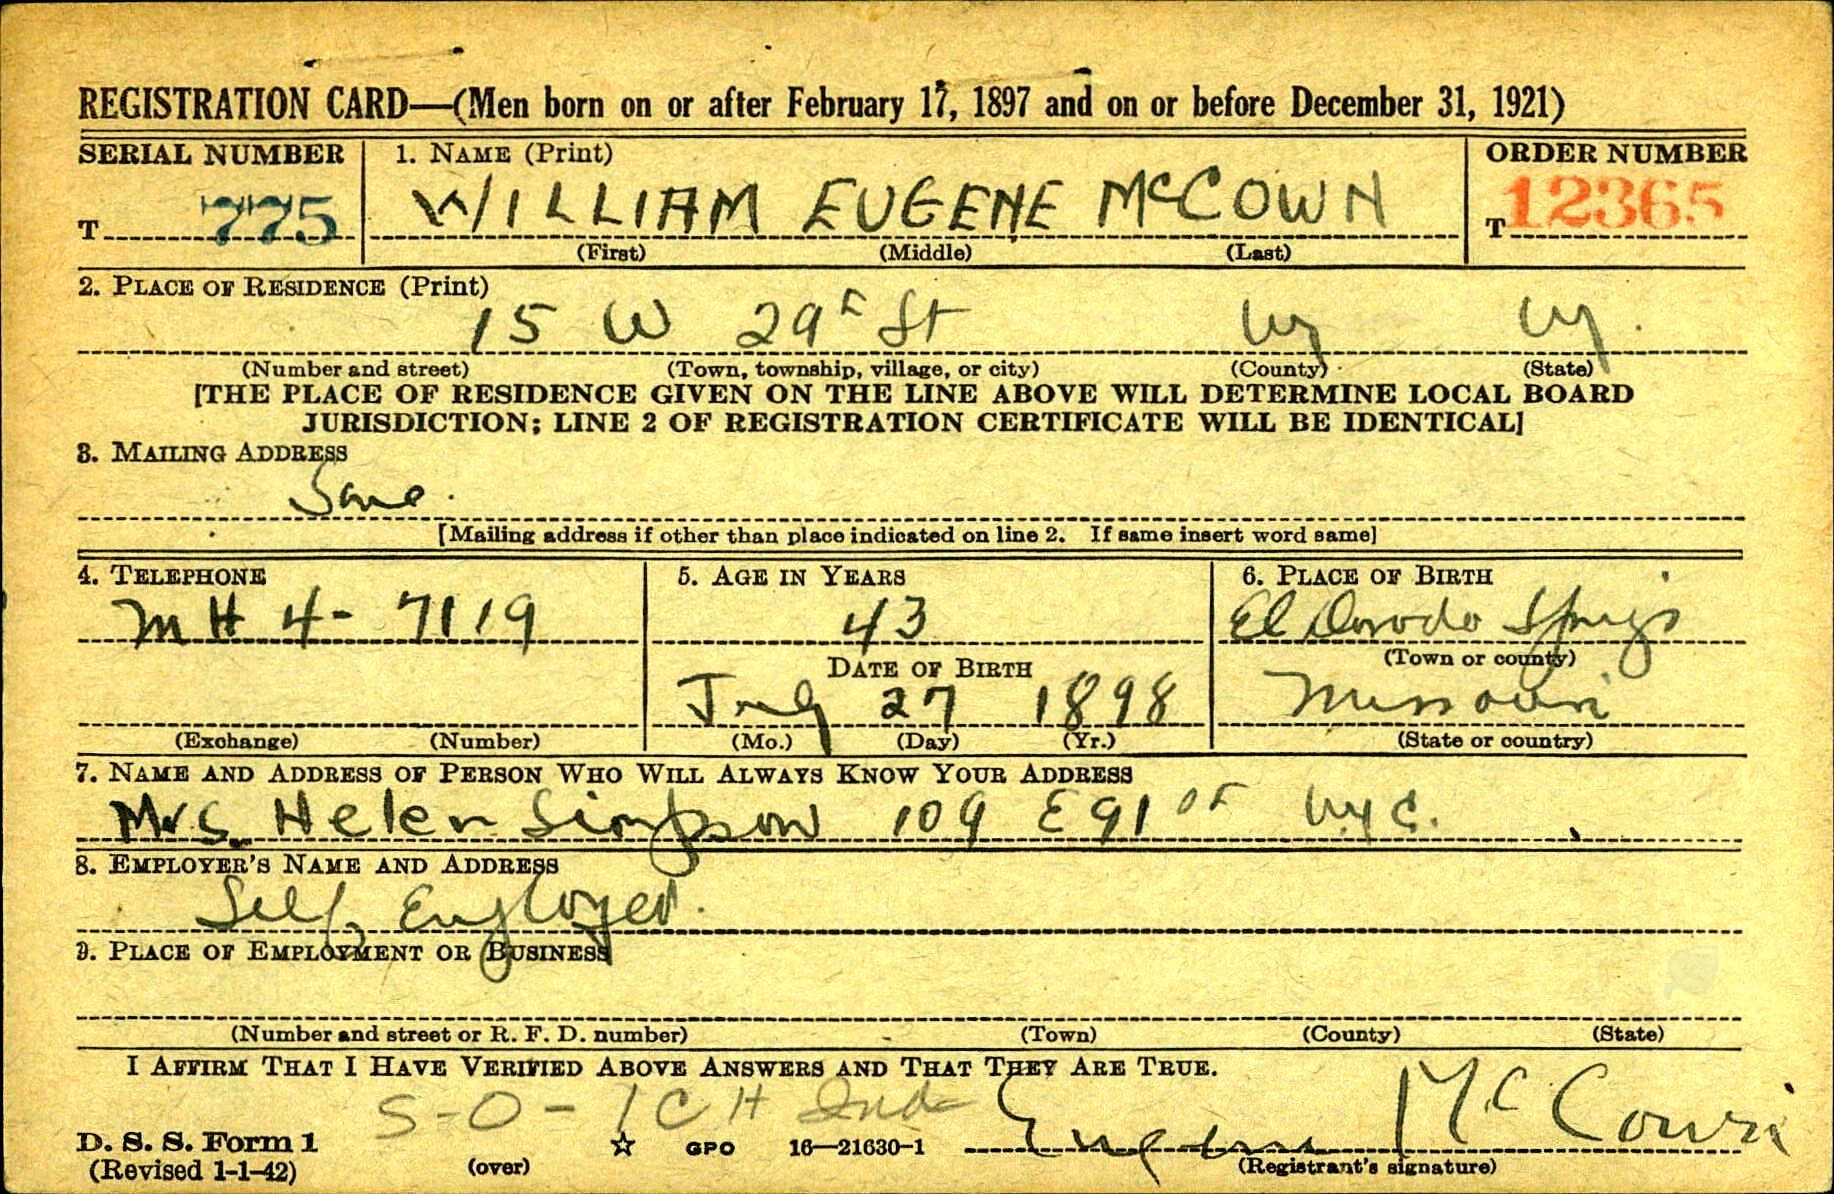 REGISTRATION CARD—(Men born on or after February 17, 1897 and on or before December 31, 1921)
SERIAL NUMBER
T 775
1. NAME (Print)
WILLIAM EUGENE McCOWN
(First) (Middle) (Last)
ORDER NUMBER
T 12365
2. PLACE OF RESIDENCE (Print)
15 W 29 St NY NY.
(Number and street) (Town, township, village, or city) (County) (State)
[THE PLACE OF RESIDENCE GIVEN ON THE LINE ABOVE WILL DETERMINE LOCAL BOARD
JURISDICTION; LINE 2 OF REGISTRATION CERTIFICATE WILL BE IDENTICAL]
3. MAILING ADDRESS
Same.
[Mailing address if other than place indicated on line 2. If same insert word same]
4. TELEPHONE
MH 4- 7119
(Exchange) (Number)
5. AGE IN YEARS
43
DATE OF BIRTH
July 27 1898
(Mo.) (Day) (Yr.)
6. PLACE OF BIRTH
El Dorado Springs
(Town or county)
Missouri
(State or country)
7. NAME AND ADDRESS OF PERSON WHO WILL ALWAYS KNOW YOUR ADDRESS
Mrs. Helen Simpson 109 E 91 NYC.
8. EMPLOYER'S NAME AND ADDRESS
Self Employed.
9. PLACE OF EMPLOYMENT OR BUSINESS
(Number and street or R. F. D. number) (Town) (County) (State)
I AFFIRM THAT I HAVE VERIFIED ABOVE ANSWERS AND THAT THEY ARE TRUE.
S-0-1CH
Eugene McCown
D. S. S. Form 1
(Revised 1-1-42)
(over)
☆ GPO 16—21630-1
(Registrant's signature)